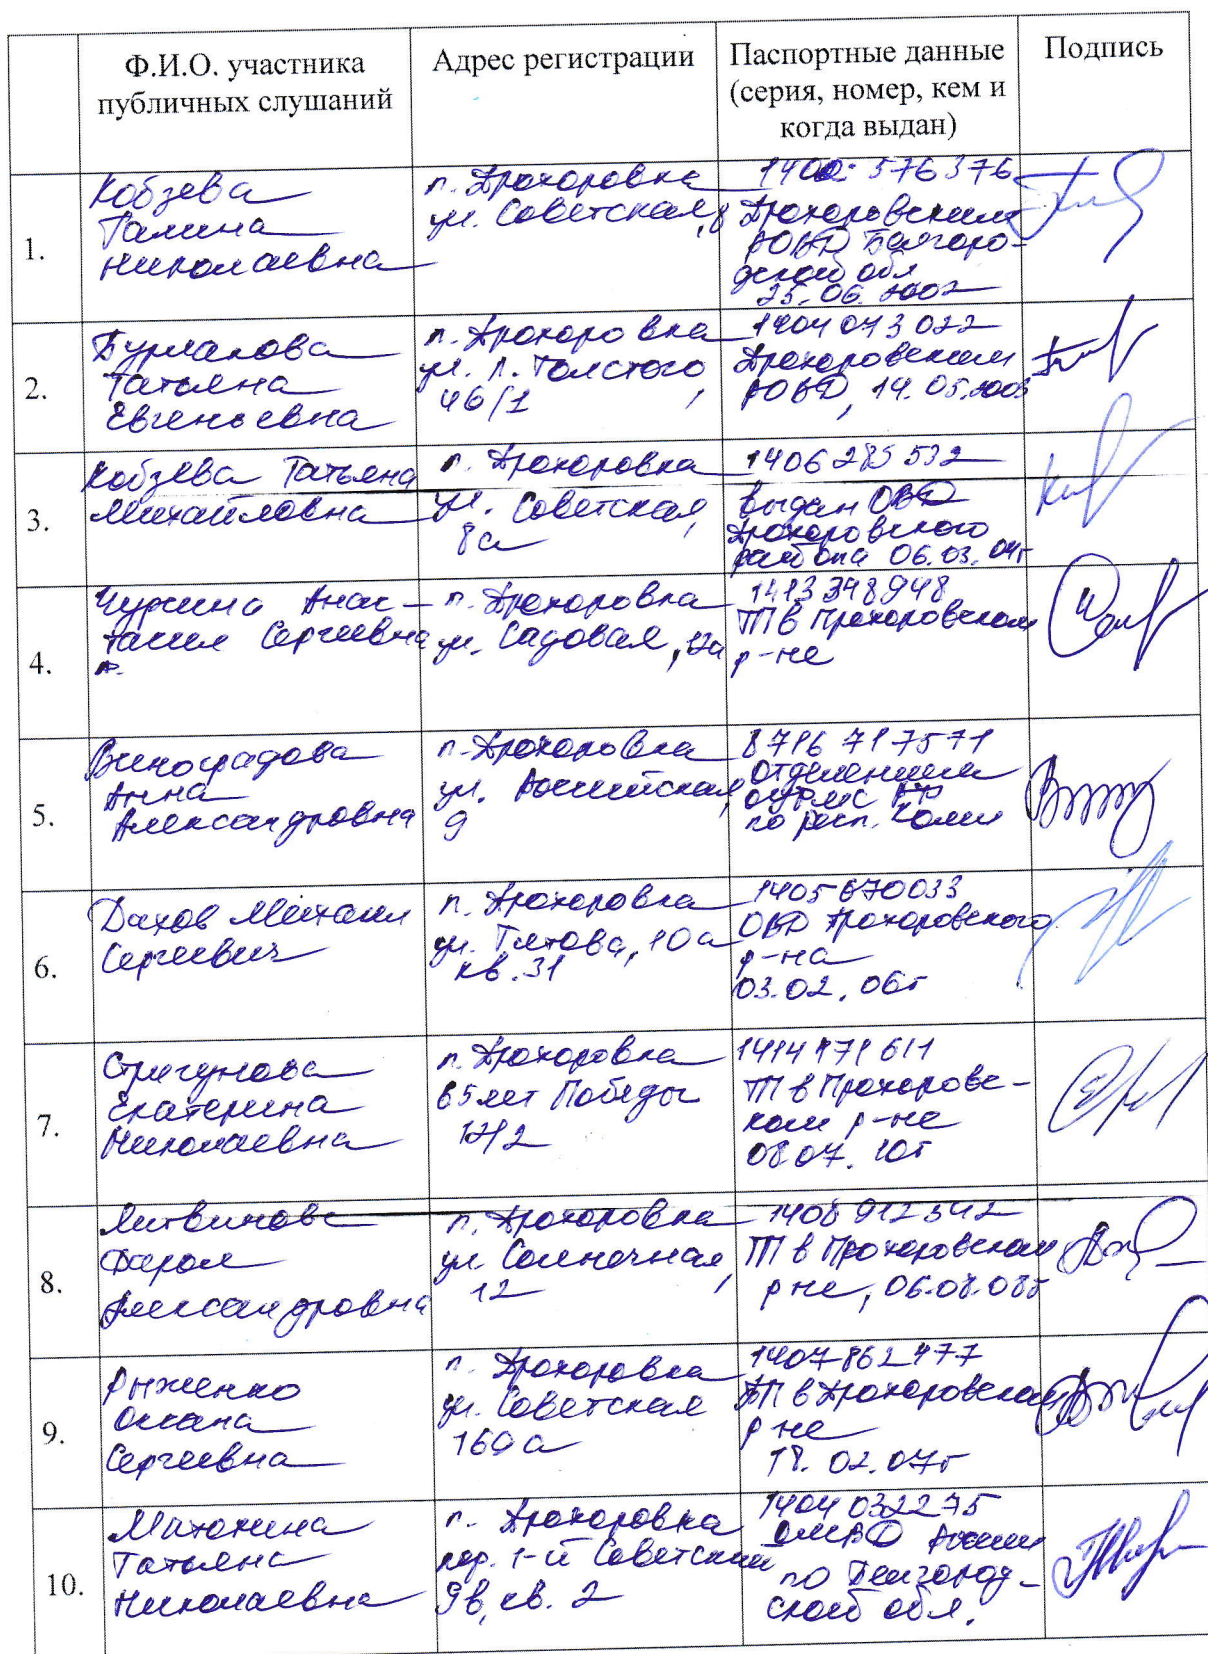 Ф.И.О. участника
публичных слушаний
Адрес регистрации
Паспортные данные
(серия, номер, кем и
когда выдан)
Подпись
1.
Кобзева
Галина
Николаевна
п. Прохоровка
ул. Советская, 8
1402 576376
Прохоровским
РОВД Белгоро-
дской обл
25.06.2002
2.
Бурлакова
Татьяна
Евгеньевна
п. Прохоровка
ул. Л. Толстого,
46/1
1404 043022
Прохоровским
РОВД, 14.05.2003
3.
Кобзева Татьяна
Михайловна
п. Прохоровка
ул. Советская,
8а
1406 285532
выдан ОВД
Прохоровского
района 06.03.
4.
Анас-
тасия Сергеевна
п. Прохоровка
ул. Садовая,
1413 348948
ТП в Прохоровском
р-не
5.
Виноградова
Анна
Александровна
п. Прохоровка
ул. Российская,
9
8716 717571
отделением
ОУФМС РФ
по респ. Коми
6.
Дахов Михаил
Сергеевич
п. Прохоровка
ул. Титова, 10а
кв. 31
1405 670033
ОВД Прохоровского
р-на
03.02.06г
7.
Стригунова
Екатерина
Николаевна
п. Прохоровка
65 лет Победы
12/2
1414 171611
ТП в Прохоровс-
ком р-не
08.07.
8.
Литвинова
Дарья
Александровна
п. Прохоровка
ул Солнечная,
12
1408 912542
ТП в Прохоровском
р не, 06.08.08г
9.
Рыженко
Оксана
Сергеевна
п. Прохоровка
ул. Советская
160а
1407 862477
ТП в Прохоровском
р не
18.02.07г
10.
Матюнина
Татьяна
Николаевна
п. Прохоровка
пер. 1-й Советский
9в, кв. 2
1404 032275
ОМВД России
по Белгород-
ской обл.